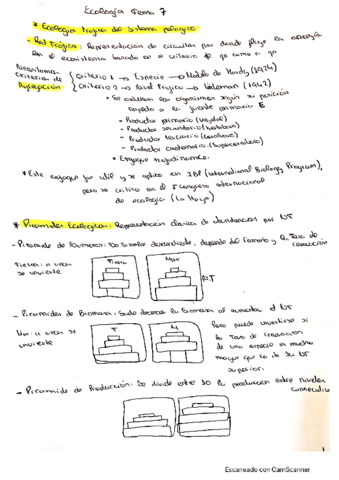 Ecología Tema 7
* Ecología trófica del sistema pelágico
- Red Trófica: Representación de circuitos por donde fluye la energía
en el ecosistema basado en el criterio de que come a que
Necesitamos
Criterios de
Agregación
Criterio 1 → Especie → Modelo de Hardy (1924)
Criterio 2 → Nivel Trófico → Lindeman (1942)
• Se ordenan los organismos según su posición
respecto a la fuente primaria E
- Productor primario (vegetal)
- Productor secundario (herbívoros)
- Productor terciario (carnívoros)
- Productor cuaternario (supercarnívoros)
• Enfoque trofodinámico.
* Este enfoque fue útil y se aplica en IBP (International Biology Program),
pero se critica en el 1º congreso internacional
de ecología (La Haya)
* Pirámides Ecológicas: Representación clásica de abundancias por NT
- Pirámide de Números: No siempre descendiente, depende del tamaño y la Tasa de
renovación
Tierra: a veces
se invierte
Tierra
Mar
- Pirámides de Biomasa: Suele decrecer la biomasa al aumentar el NT
Mar: a veces se
invierte
T
M
Pero puede invertirse si
la Tasa de renovación
de una especie es mucho
mayor que la de su NT
superior.
- Pirámide de Producción: Se divide entre 10 la producción entre niveles
consecutivos
1
Escaneado con CamScanner